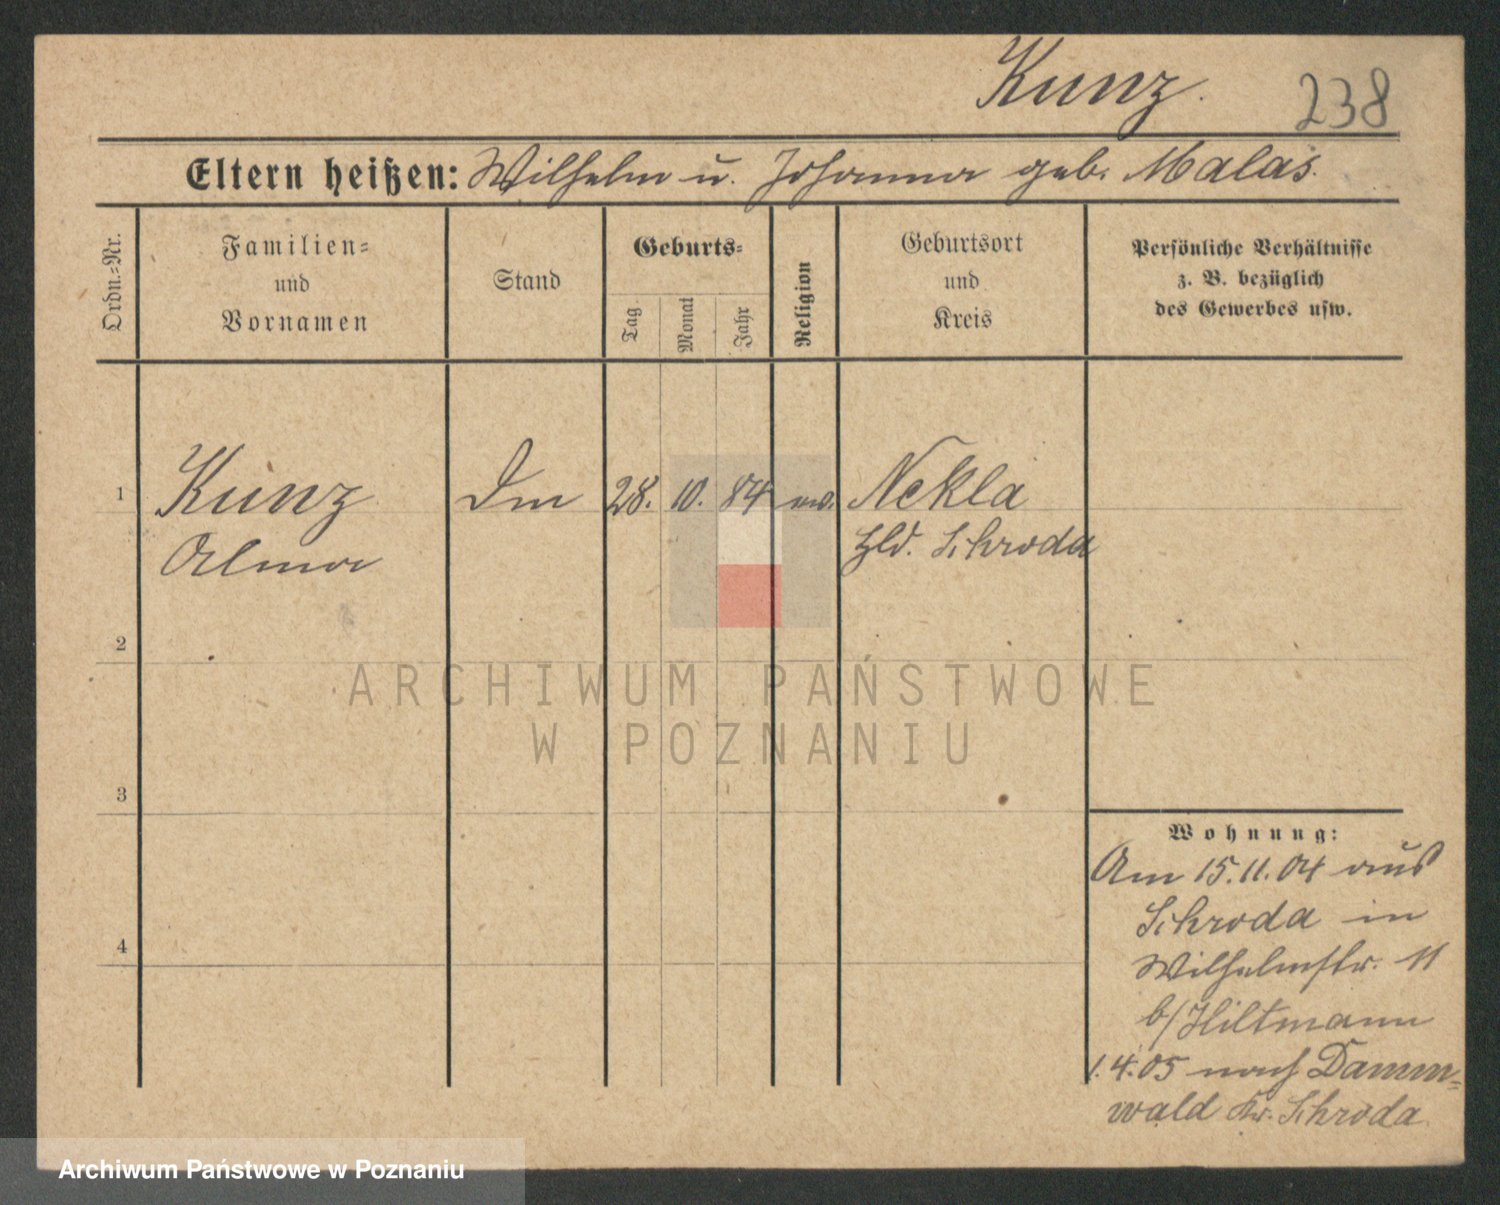 Kunz.
238
Eltern heißen: Wilhelm u. Johanna geb. Malas.
Ordn.-Nr.
Familien-
und
Vornamen
Stand
Geburts-
Tag
Monat
Jahr
Religion
Geburtsort
und
Kreis
Persönliche Verhältnisse
z. B. bezüglich
des Gewerbes usw.
1
Kunz
Alma
28.
10.
84
ev.
Nekla
Hld. Schroda
2
3
4
Wohnung:
Am 15.11.04 aus
Schroda in
Wilhelmstr. 11
b/Hiltmann
1.4.05 nach Damm-
wald Kr. Schroda
ARCHIWUM PAŃSTWOWE
W POZNANIU
Archiwum Państwowe w Poznaniu